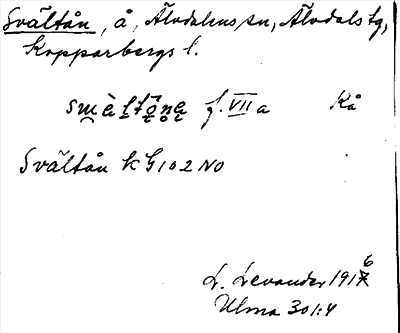 Svältån, å, Älvdalens sn, Älvdals tg,
Kopparbergs l.
smè̀ltǫ̂nę f. VII a Kå
Svältån k G 102 NO
L. Levander 1916
Ulma 301:4